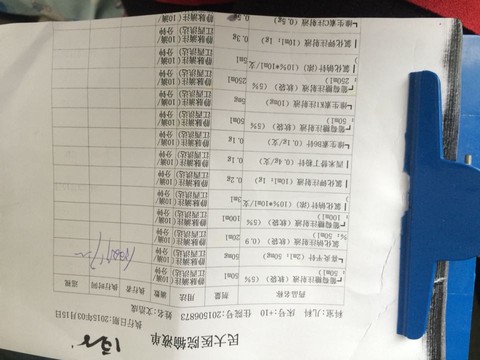 民大医院输液单
执行日期:2015年03月15日
科室:儿科 床号:+10 住院号:201506873 姓名:文浩成
药品名称 剂量 用法 滴数 执行者 执行时间 巡视
葡萄糖注射液(软袋)(5%
:50ml) 50ml 静脉滴注(江西洪达) 10滴/分钟
喜炎平针(2ml:50mg) 50mg 静脉滴注(江西洪达) 10滴/分钟
氯化钠注射液(软袋)(0.9
%:50ml) 20ml 静脉滴注(江西洪达) 10滴/分钟
葡萄糖注射液(软袋)(5%
:100ml) 100ml 静脉滴注(江西洪达) 10滴/分钟
氯化钠针(浓)(10%*10ml/支 3ml 静脉滴注(江西洪达) 10滴/分钟
氯化钾注射液(10ml:1g) 0.2g 静脉滴注(江西洪达) 10滴/分钟
西米替丁针(0.4g/支) 0.1g 静脉滴注(江西洪达) 10滴/分钟
维生素B6针(0.1g/支) 0.1g 静脉滴注(江西洪达) 10滴/分钟
葡萄糖注射液(软袋)(5%
:50ml) 50ml 静脉滴注(江西洪达) 10滴/分钟
维生素K1注射液(10mg) 5mg 静脉滴注(江西洪达) 10滴/分钟
葡萄糖注射液(软袋)(5%
:250ml) 250ml 静脉滴注(江西洪达) 10滴/分钟
氯化钠针(浓)(10%*10ml/支 5ml 静脉滴注(江西洪达) 10滴/分钟
氯化钾注射液(10ml:1g) 0.3g 静脉滴注(江西洪达) 10滴/分钟
维生素C注射液(0.5g) 0.5g 静脉滴注(10滴/